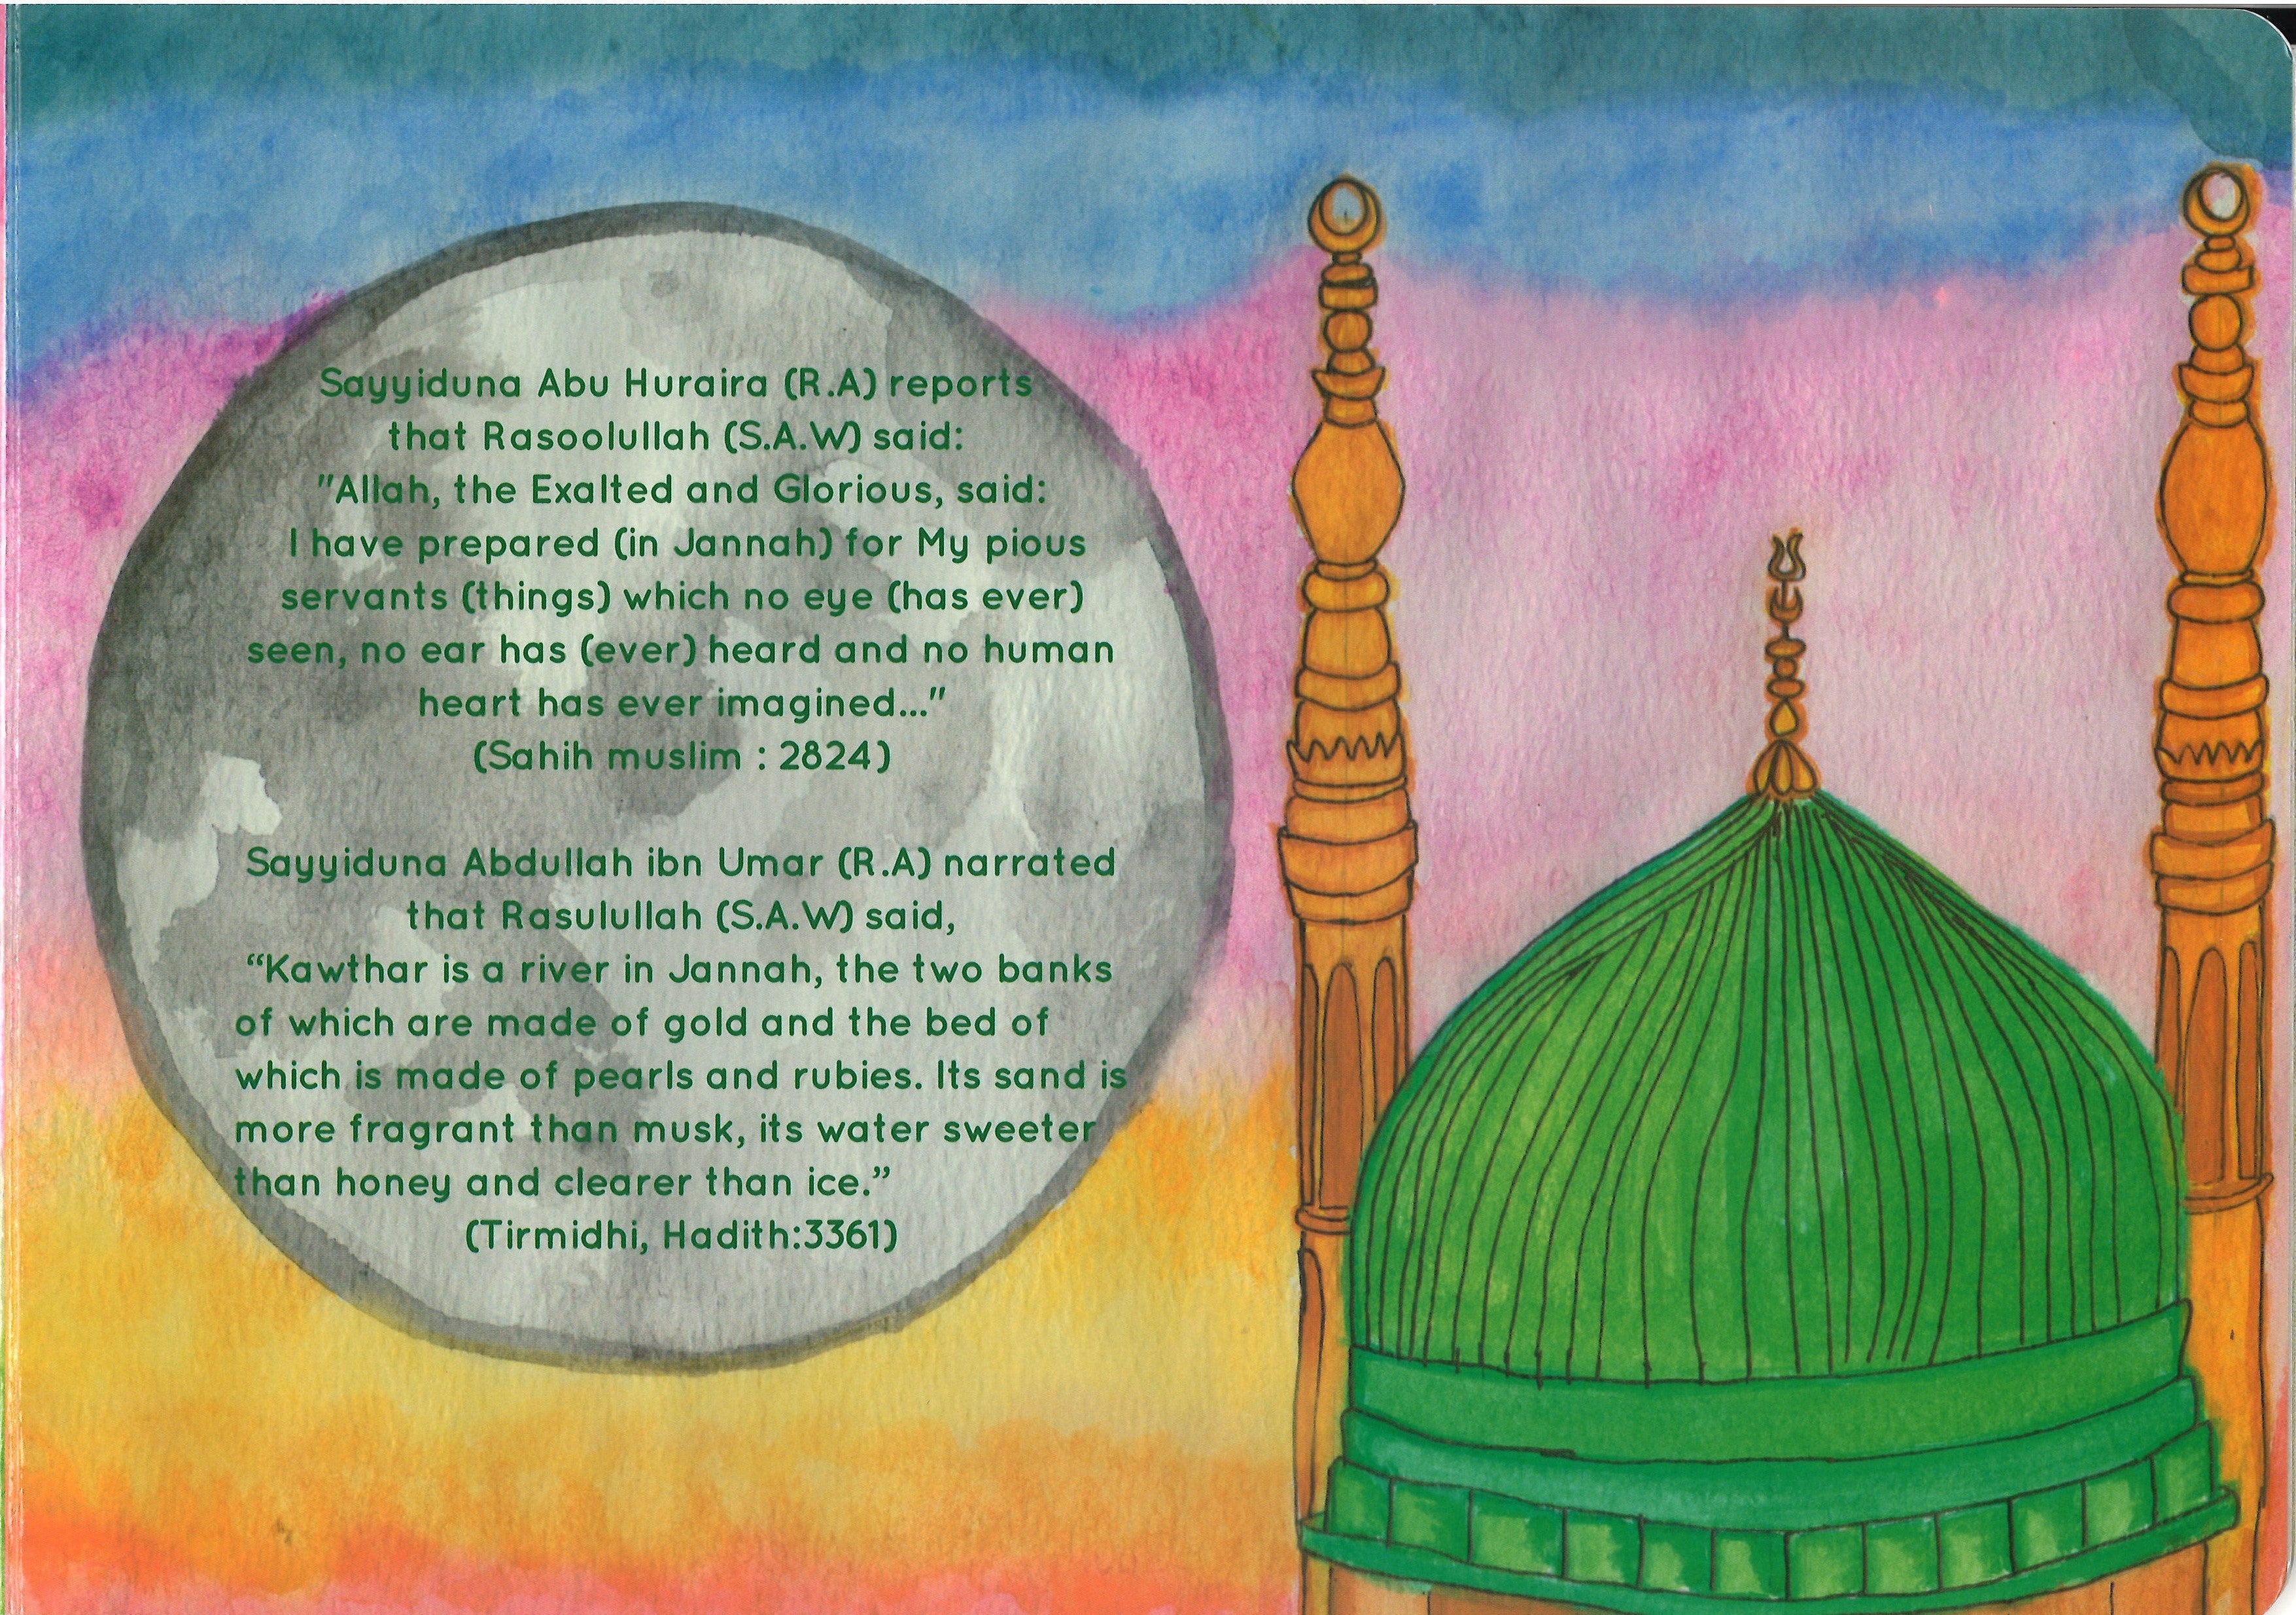 Sayyiduna Abu Huraira (R.A) reports
that Rasoolullah (S.A.W) said:
"Allah, the Exalted and Glorious, said:
I have prepared (in Jannah) for My pious
servants (things) which no eye (has ever)
seen, no ear has (ever) heard and no human
heart has ever imagined..."
(Sahih muslim : 2824)
Sayyiduna Abdullah ibn Umar (R.A) narrated
that Rasulullah (S.A.W) said,
“Kawthar is a river in Jannah, the two banks
of which are made of gold and the bed of
which is made of pearls and rubies. Its sand is
more fragrant than musk, its water sweeter
than honey and clearer than ice.”
(Tirmidhi, Hadith:3361)